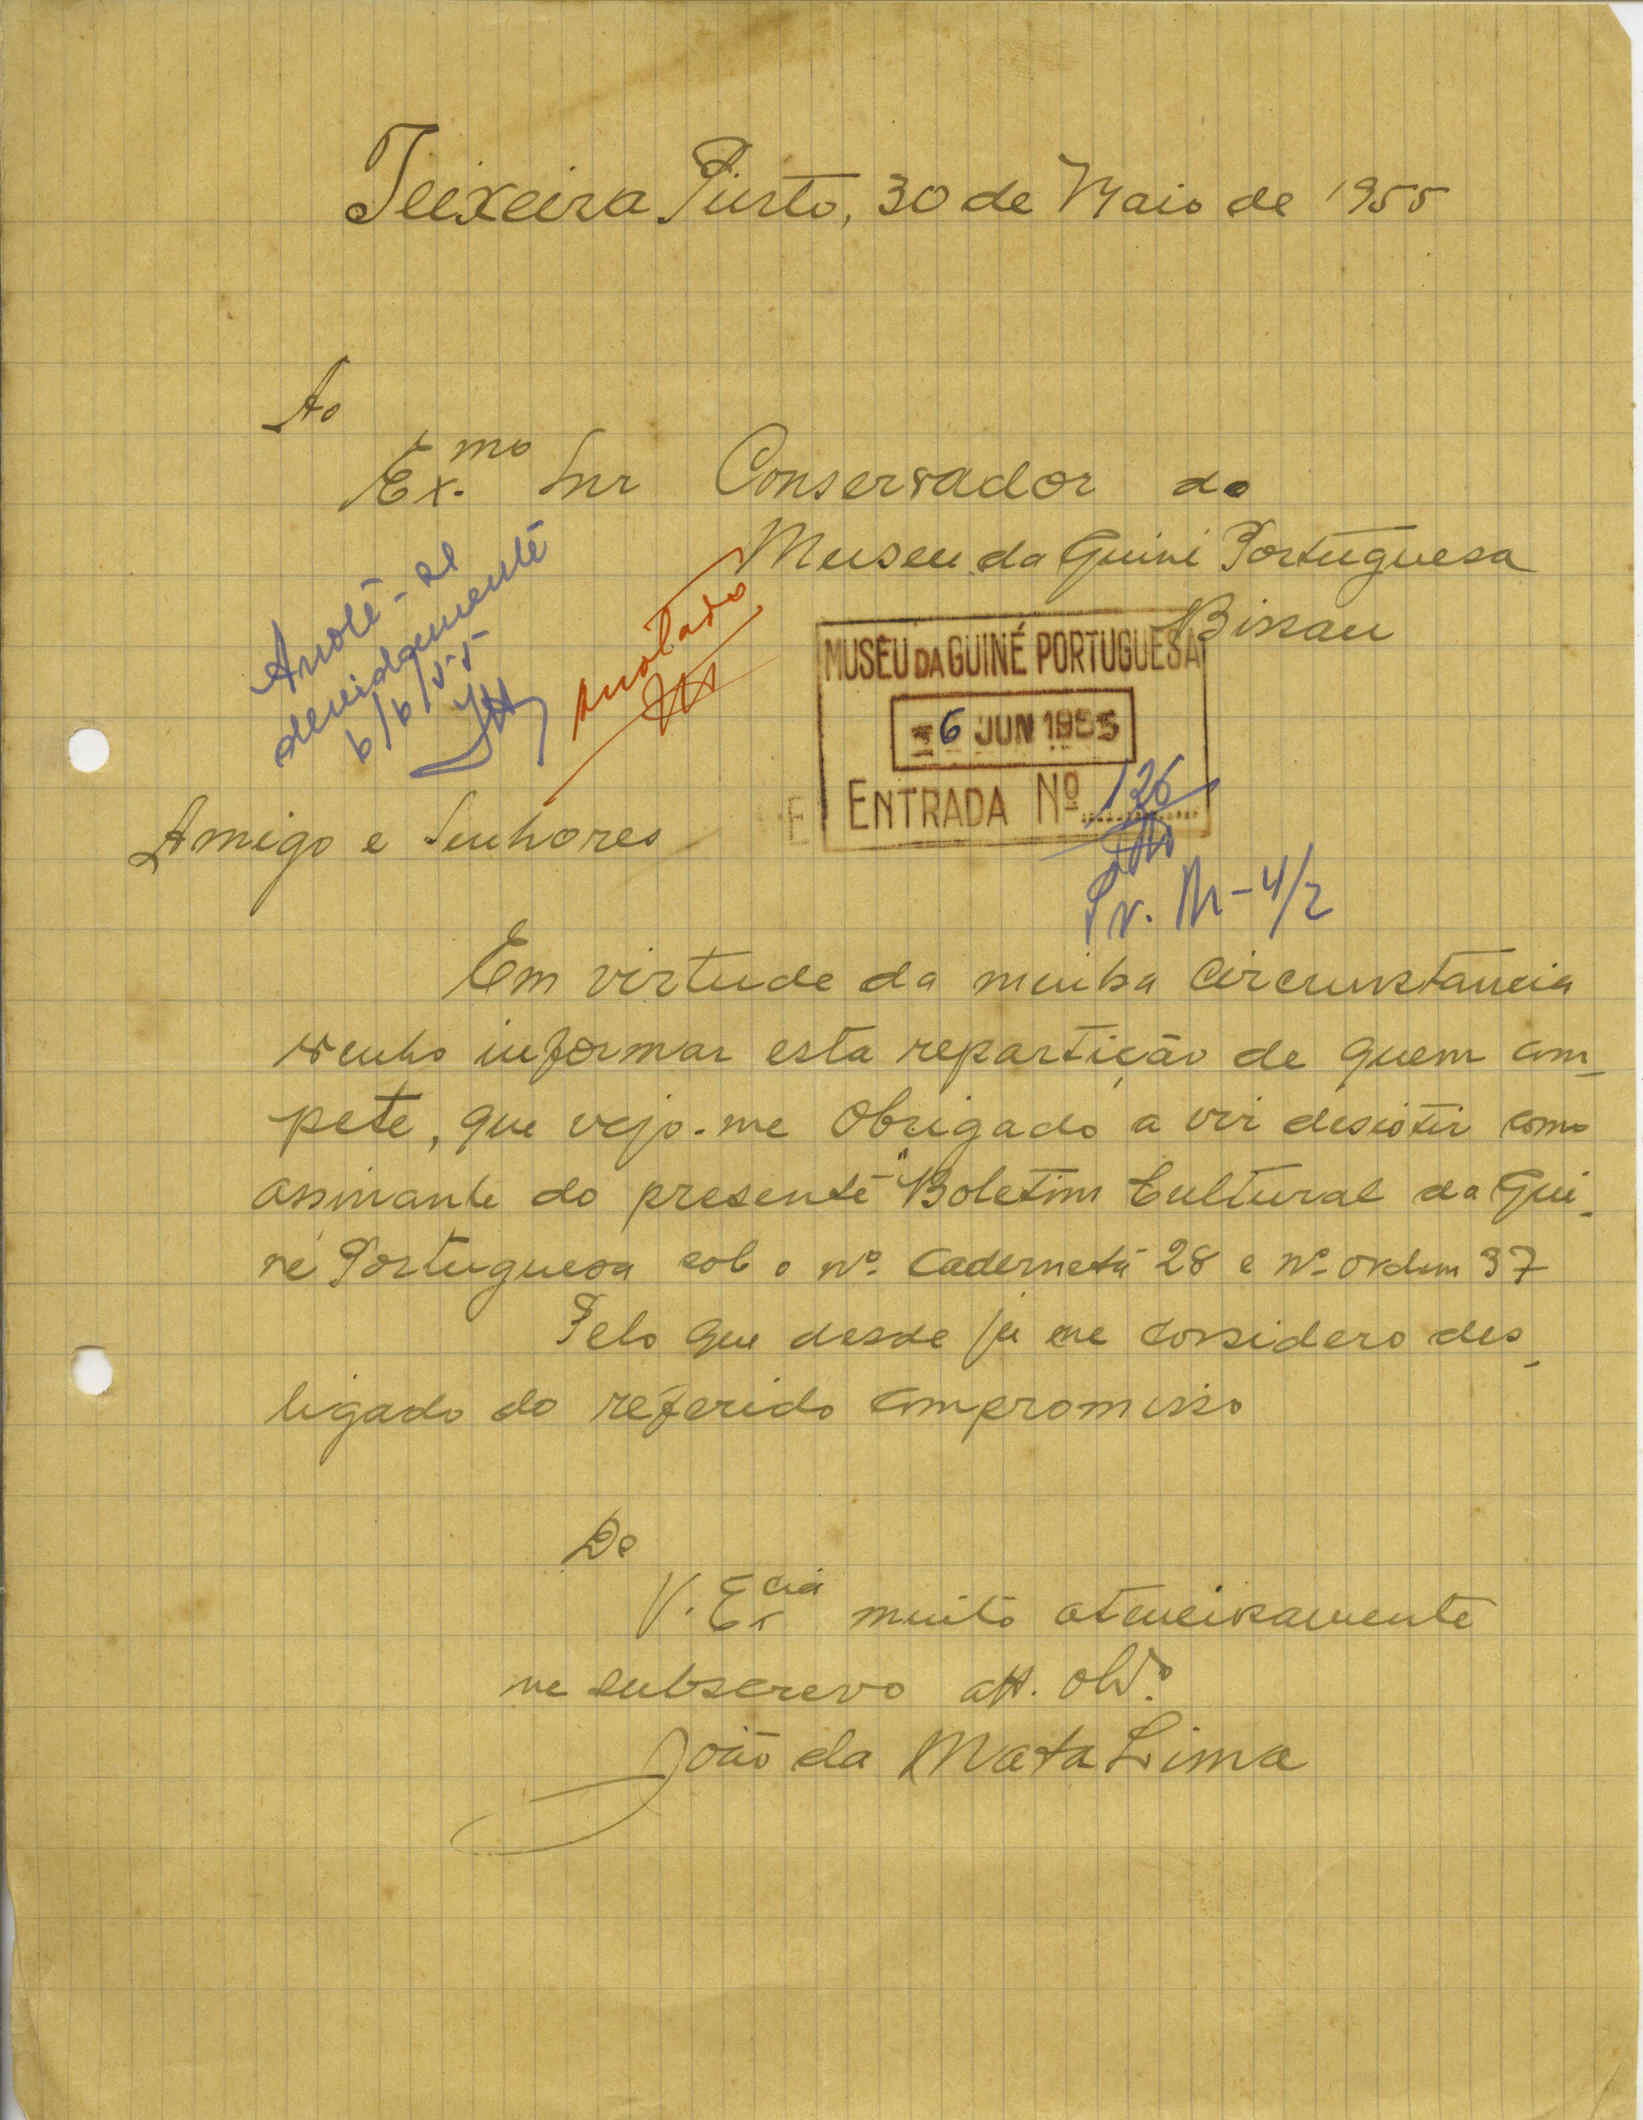 Teixeira Pinto, 30 de Maio de 1955
Ao
Ex.mo Snr Conservador do
Museu da Guiné Portuguesa
Bissau
Anote-se
devidamente
6/6/55
anotado
MUSEU DA GUINÉ PORTUGUESA
6 JUN 1955
ENTRADA Nº 126
Pr. M-4/2
Amigo e Senhores
Em virtude da minha circunstancia
venho informar esta repartição de quem com-
pete, que vejo-me obrigado a vir desistir como
assinante do presente "Boletim Cultural da Gui-
né Portuguesa sob o nº. Caderneta 28 e nº ordem 37
Pelo que desde já me considero des-
ligado do referido compromisso
De
V. Excia muito atenciosamente
me subscrevo att. obdº.
João da Mata Lima